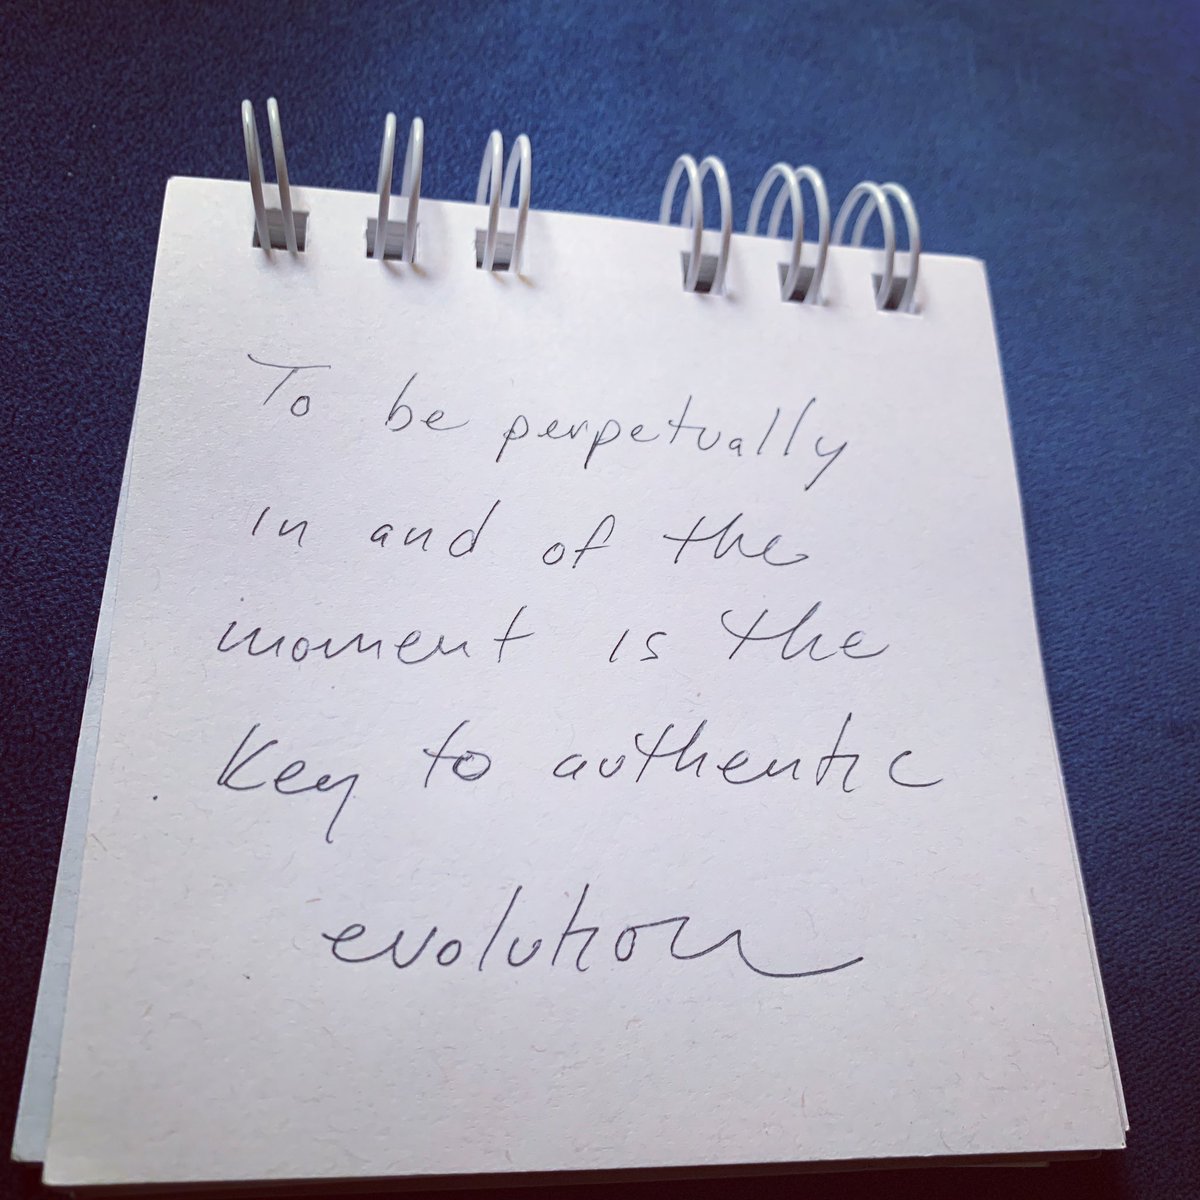 To be perpetually
in and of the
moment is the
key to authentic
evolution